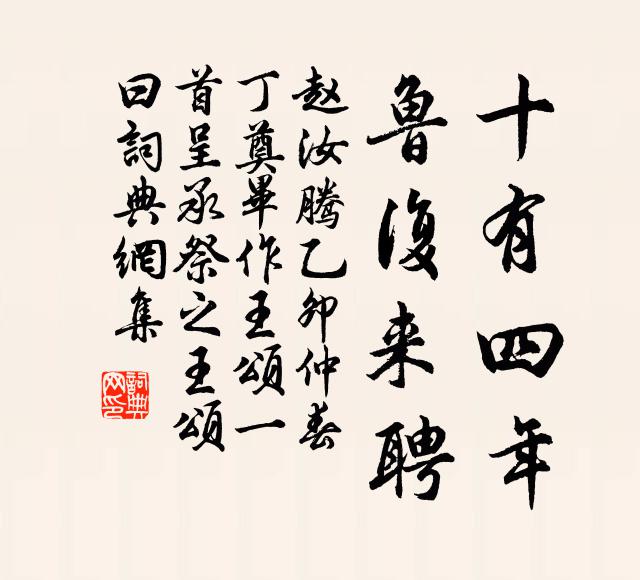 十有四年
魯復来聘
赵汝腾乙卯仲春
丁奠畢作王頌一
首呈承祭之王頌
曰詞典網集
詞典網印